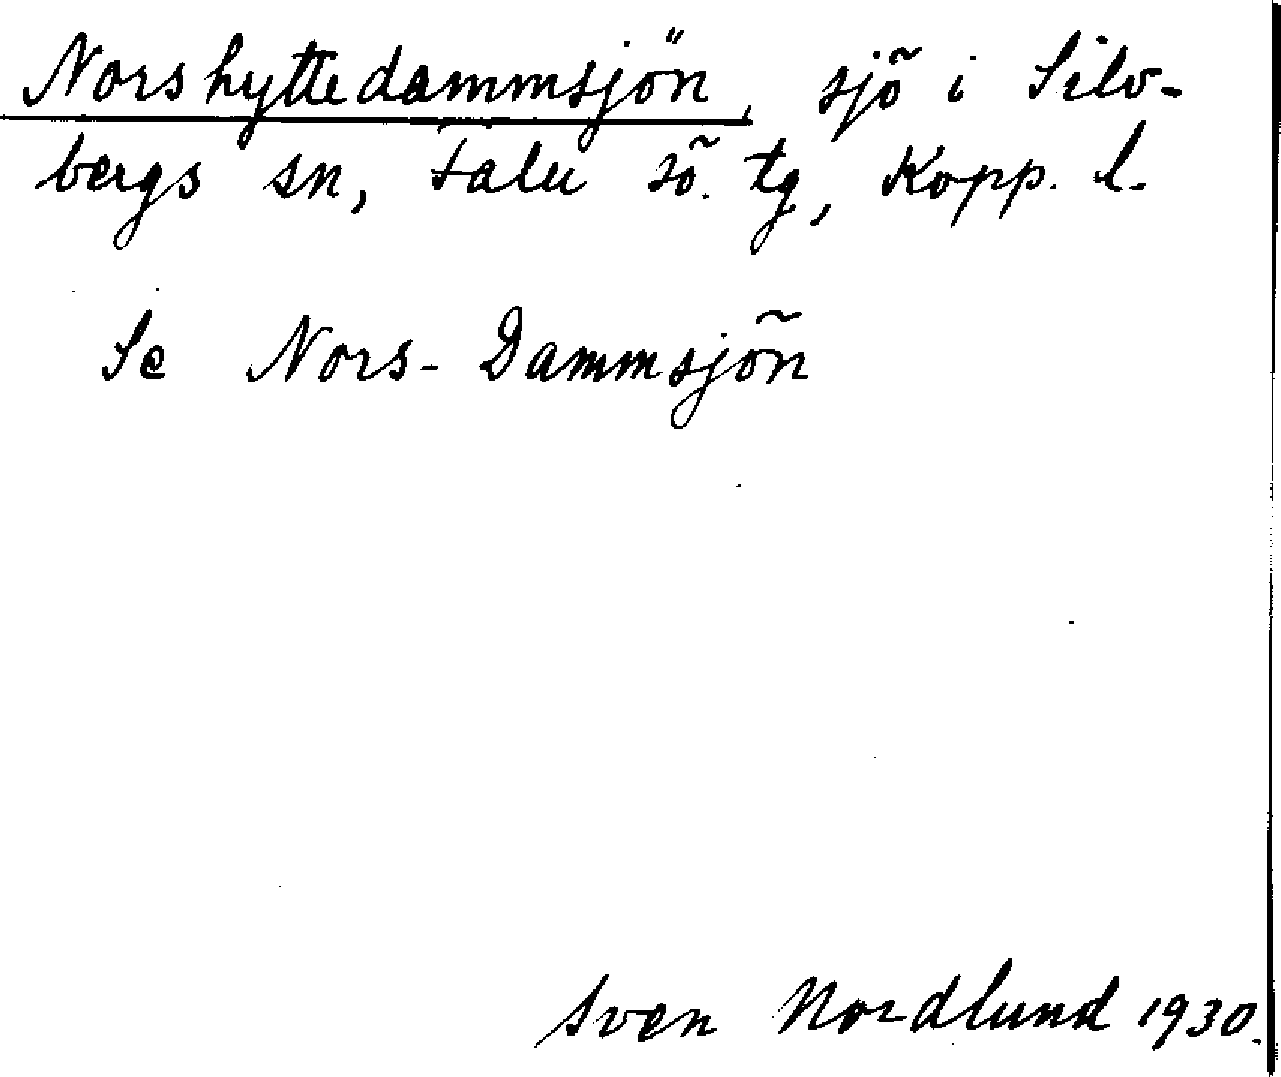 Norshyttedammsjön, sjö i Silv-
bergs sn, Falu sö. tg, Kopp. l.
Se Nors-Dammsjön
Sven Nordlund 1930.